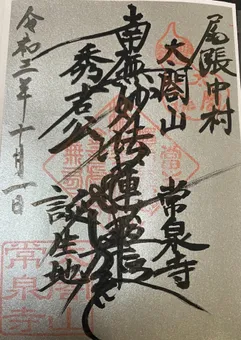 尾張中村
太閤山 常泉寺
南無妙法蓮華経
秀吉公 誕生地
令和三年十月一日
常泉寺